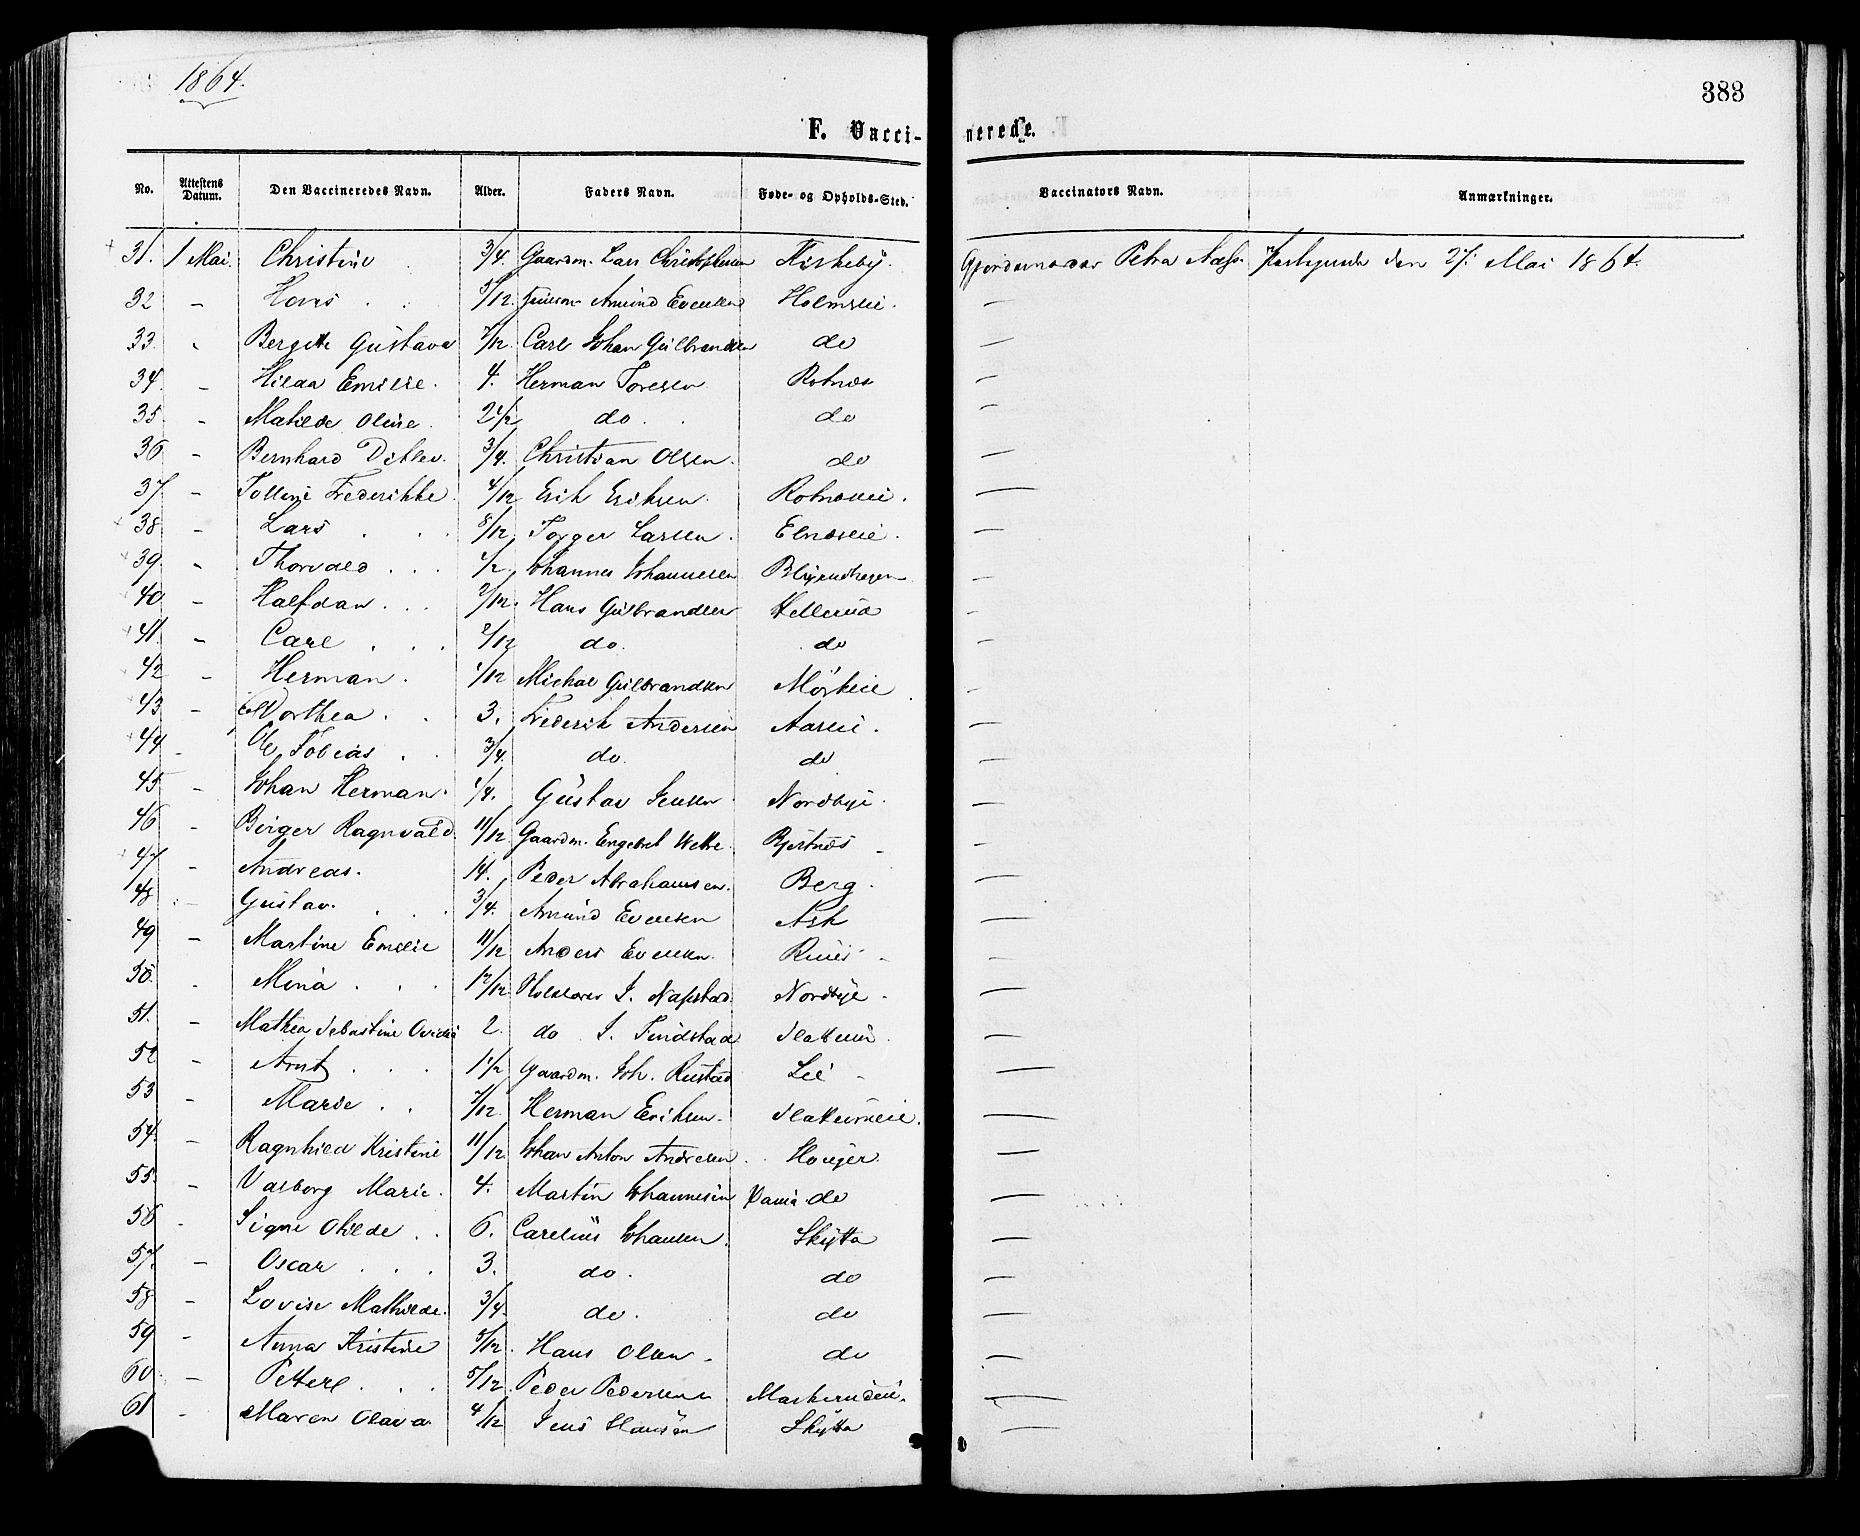 1864.
383
F. Vaccinerede.
No. Attestens Datum. Den Vaccineredes Navn. Alder. Faders Navn. Føde- og Opholds-Sted. Vaccinators Navn. Anmærkninger.
31. 1 Mai. Christine 3/4 Gaardm. Lars Christophersen Kirkeby. Gjordemoder Petra Næss. den 27. Mai 1864.
32 - . . 5/12. Amund Evensen Holmseie. —
33. - Bergitte Gustava 7/12 Carl Johan Gulbrandsen do —
34. - Hilda Emilie. 4. Herman Toresen Rotnæs —
35. - Matilde Oline. 2 1/2 do . . do —
36 - Bernhard Ditlev. 3/4. Christian Olsen. do —
37. - Frederikke. 4/12 Erik Eriksen. Rotnæseie. —
38. - Lars . . . 8/12 Torger Larsen. Elnæseie. —
39. - Thorvald . . . 1/2 Johannes Johannesen —
40 - Halfdan . . . 2/12. Hans Gulbrandsen Hellerud —
41. - Carl . . . 2/12 do. do —
42 - Herman . 1/12 Michal Gulbrandsen Mörkeie . —
43. - Dorthea . . 3. Frederik Andersen Aaseie. —
44 - Ole Tobias . . 3/4. do. do —
45 - Johan Herman. 1/4. Gustav Jensen. Nordbye. —
46 - Birger Ragnvald. 11/12 Gaardm. Engebret Bjertnæs —
47 - Andreas. 14. Peder Abrahamsen. Berg. —
48 - Gustav. . . . 3/4. Amund Evensen Ask —
49 - Martine Emilie 11/12 Anders Evensen. —
50. - Mina . . . 12/12 J. Nordbye. —
51. - Mathea Sebastine 2. do J. Tindstad —
52 - Arnt . . . 1 1/2 Gaardm. Joh. Rustad —
53 - Marie . . 7/12 Herman Eriksen. —
54. - Ragnhild Kristine 11/12 Johan Anton Andresen . —
55. - Valborg Marie. 4. Martin Johannesen do —
56 - Signe Otilde . . 6. Carelius Johansen. Skytta —
57. - Oscar . . . 3. do. do —
58 - Lovise Mathilde. 3/4. do. do —
59 - Anna Kristine 5/12. Hans Olsen do —
60 - . . . 5/12. Peder Pedersen —
61 - Maren Olava 4/12 Jens Hansen Skytta —